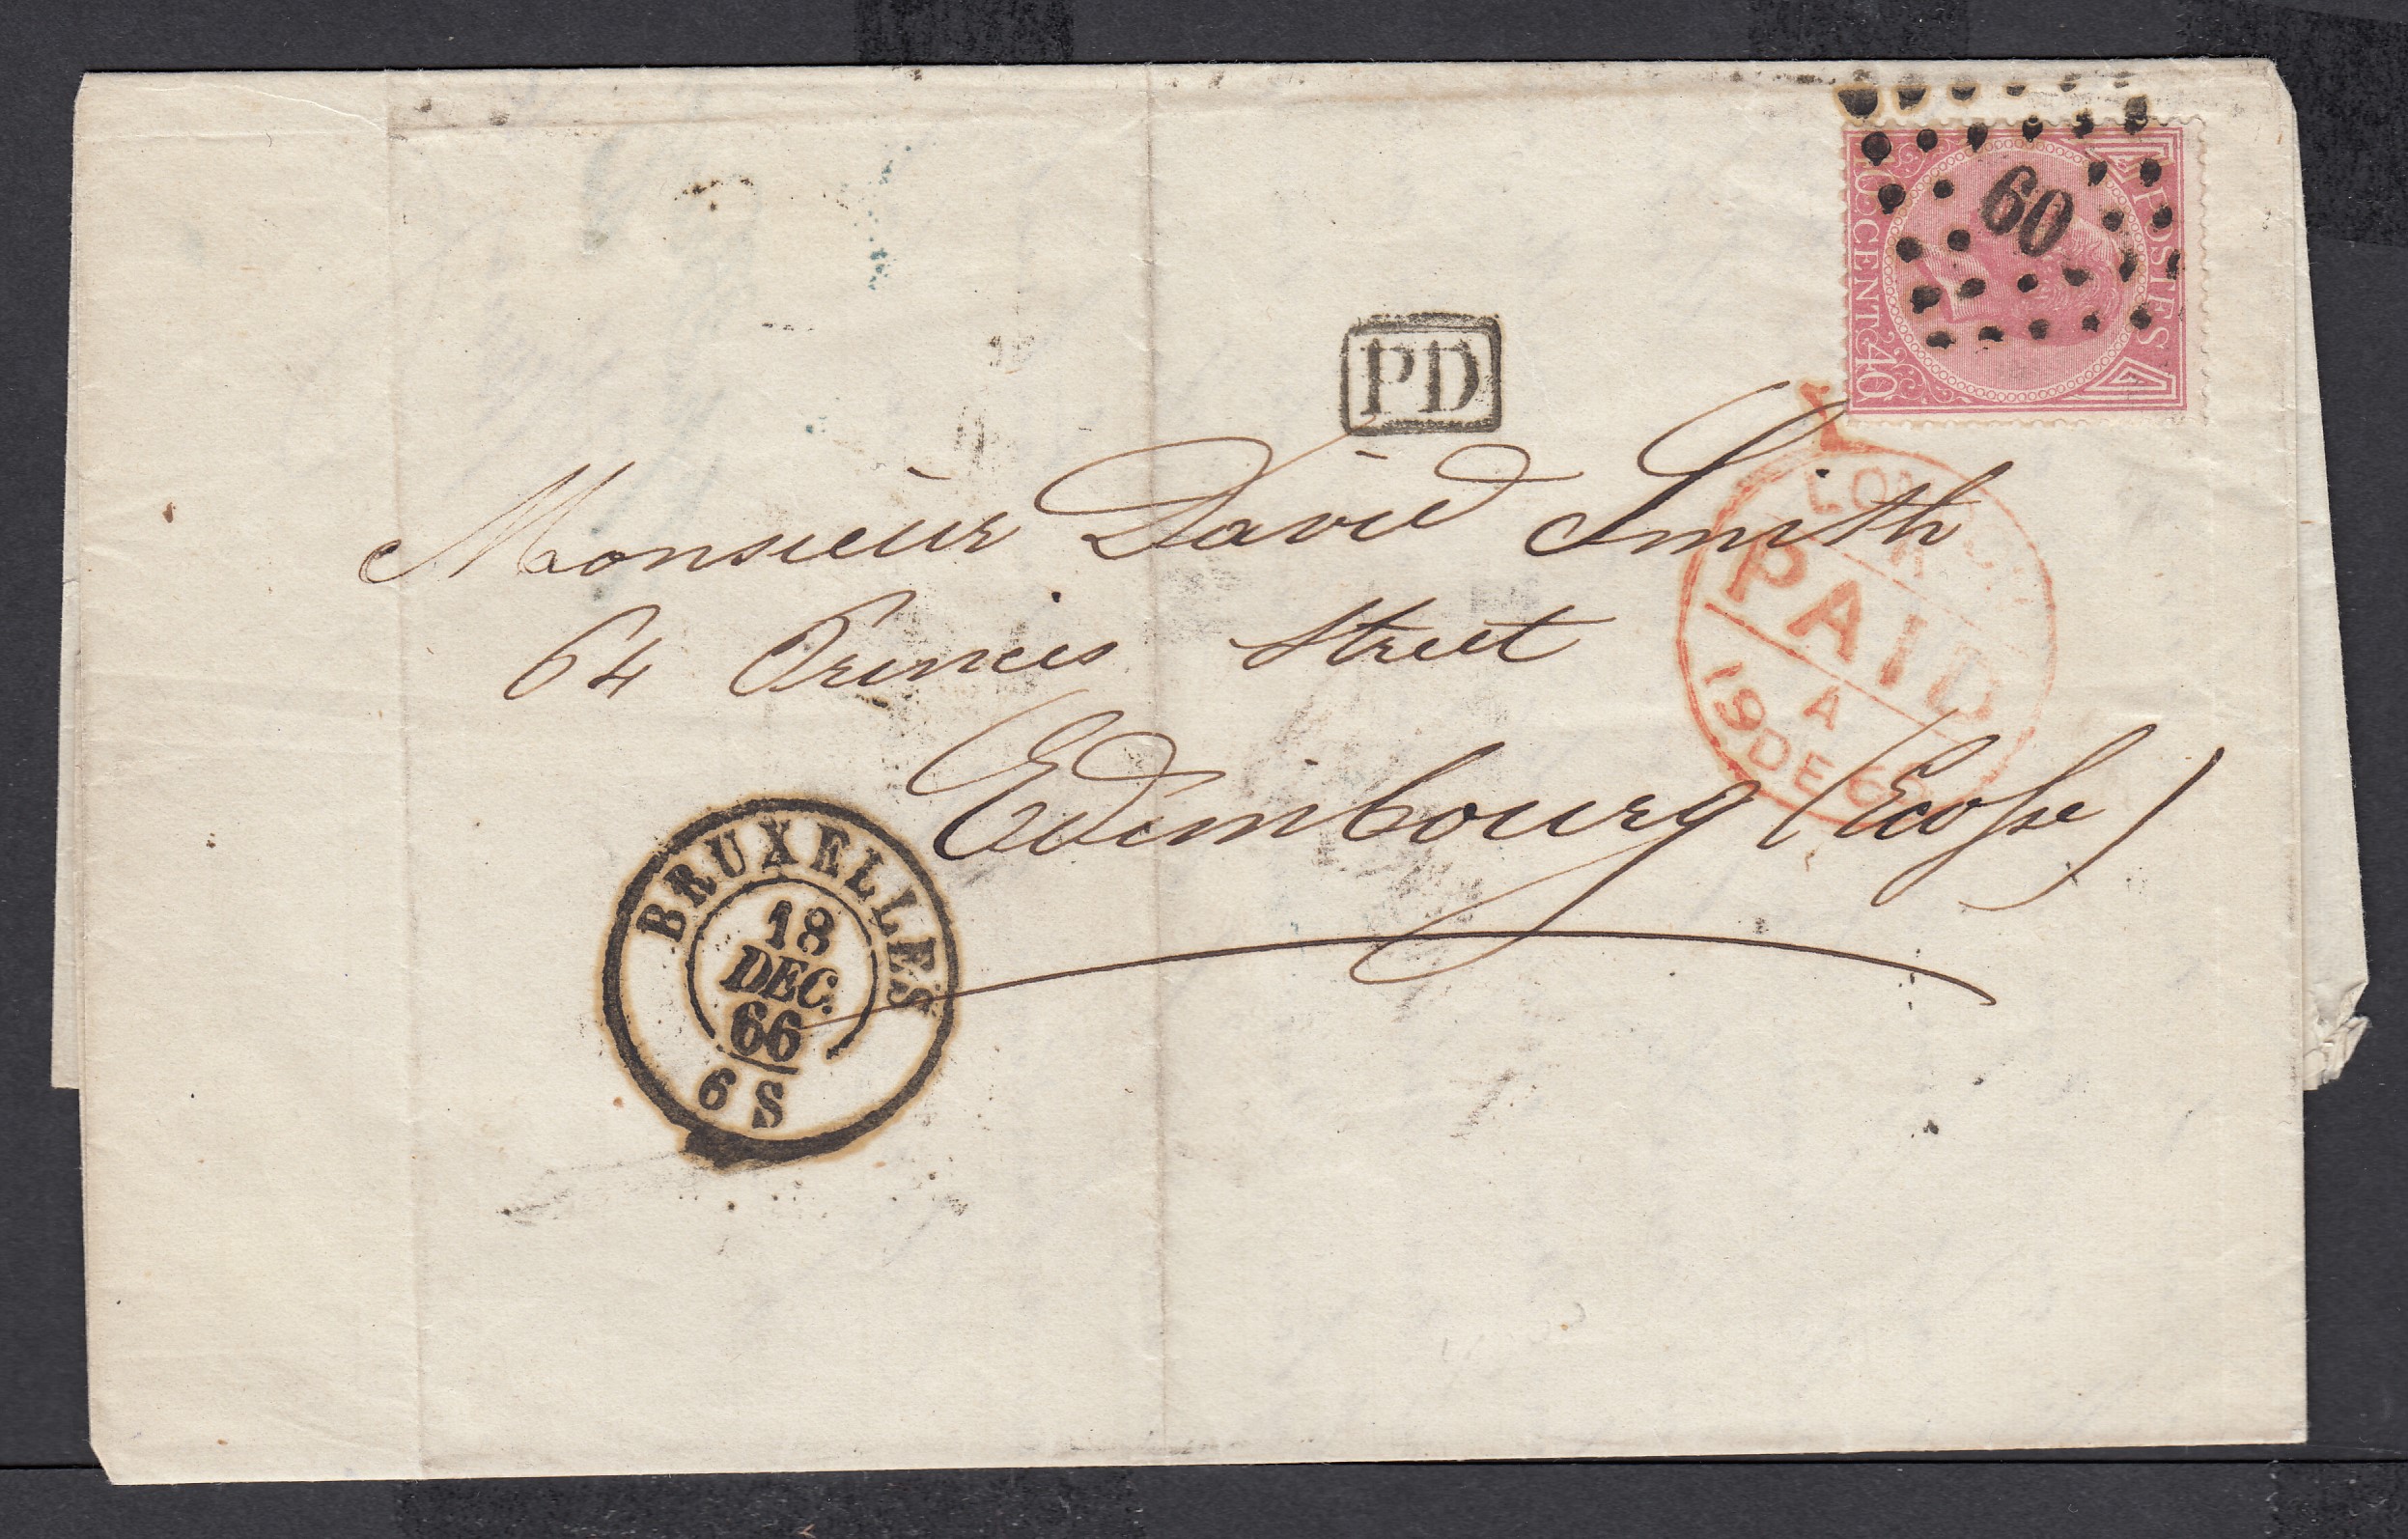 POSTES
40 CENT 40
60
PD
Monsieur David Smith
64 Princes Street
Edimbourg (Ecosse)
LONDON
PAID
A
19 DE 66
BRUXELLES
18
DEC.
66
6 S